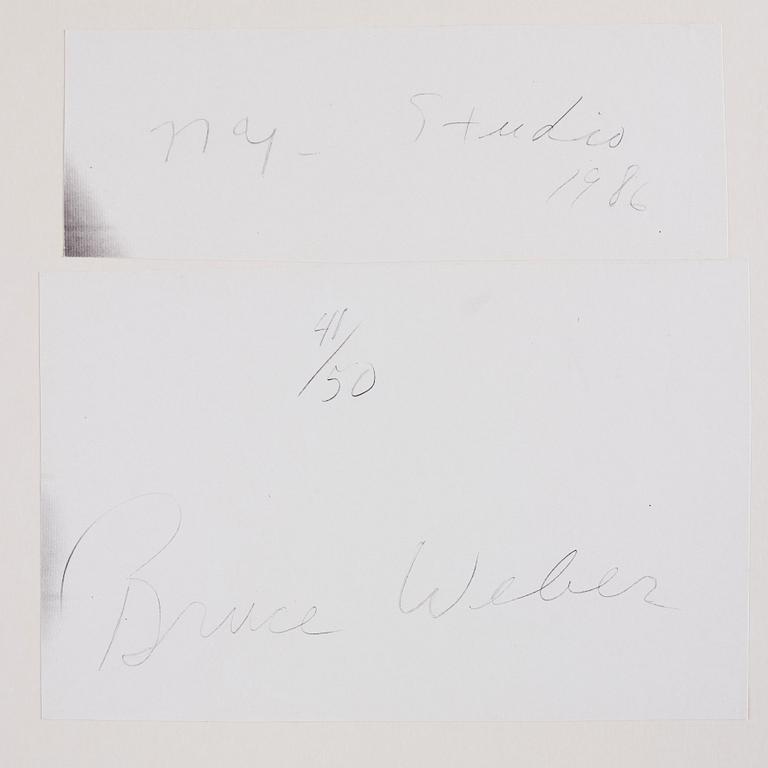 ny - Studio
1986
41/50
Bruce Weber